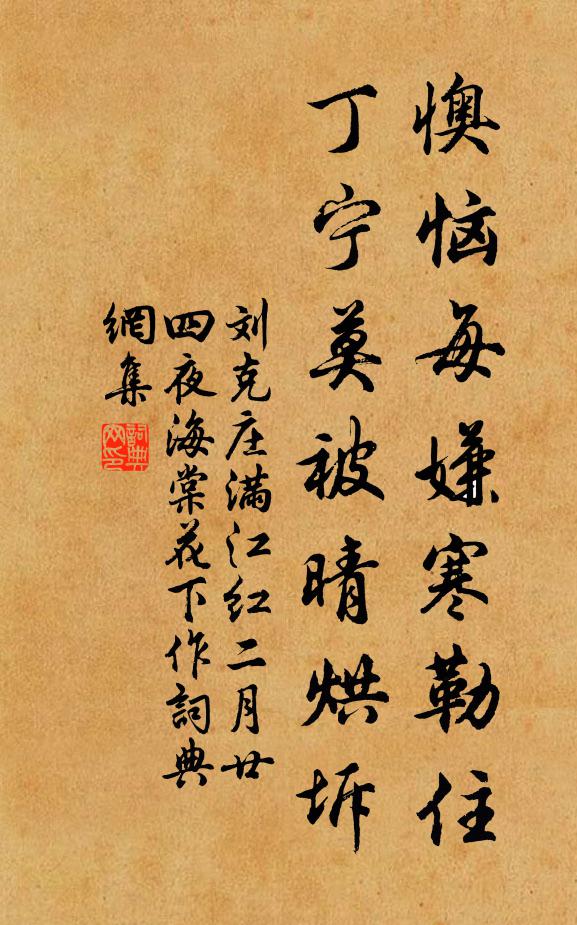 懊恼每嫌寒勒住
丁宁莫被晴烘坼
刘克庄满江红二月廿
四夜海棠花下作詞典
網集
詞典
网印